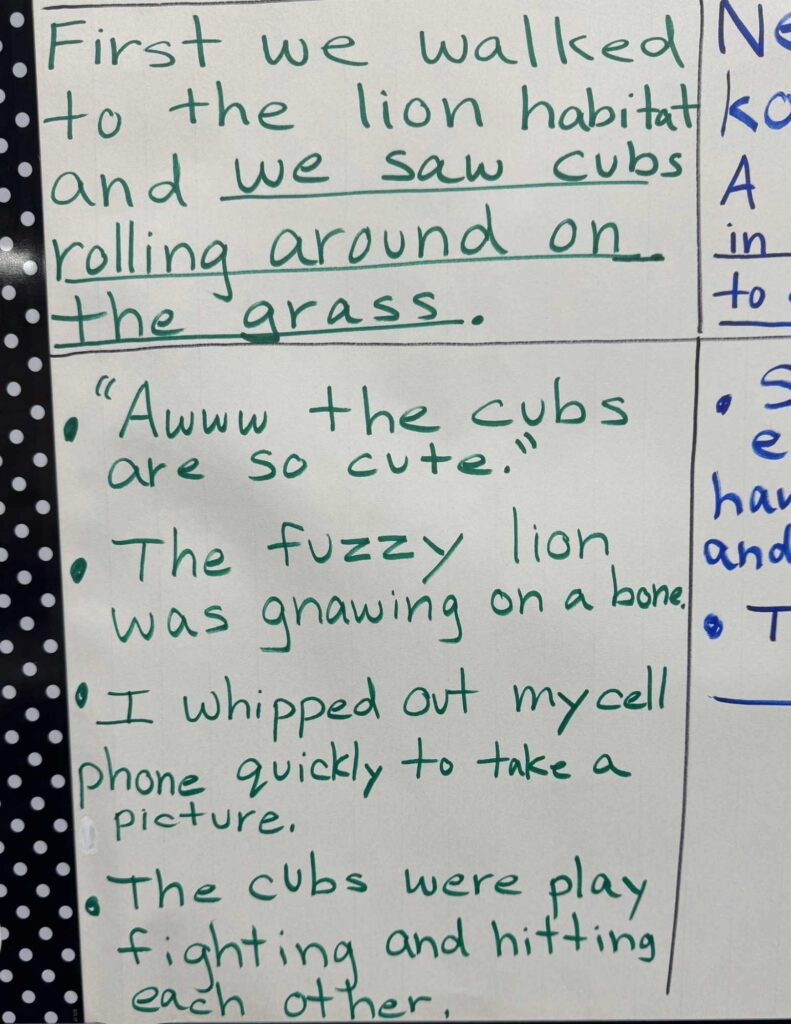 First we walked
to the lion habitat
and we saw cubs
rolling around on
the grass.
• "Awww the cubs
are so cute."
• The fuzzy lion
was gnawing on a bone.
• I whipped out my cell
phone quickly to take a
picture.
• The cubs were play
fighting and hitting
each other.
A
in
to
and